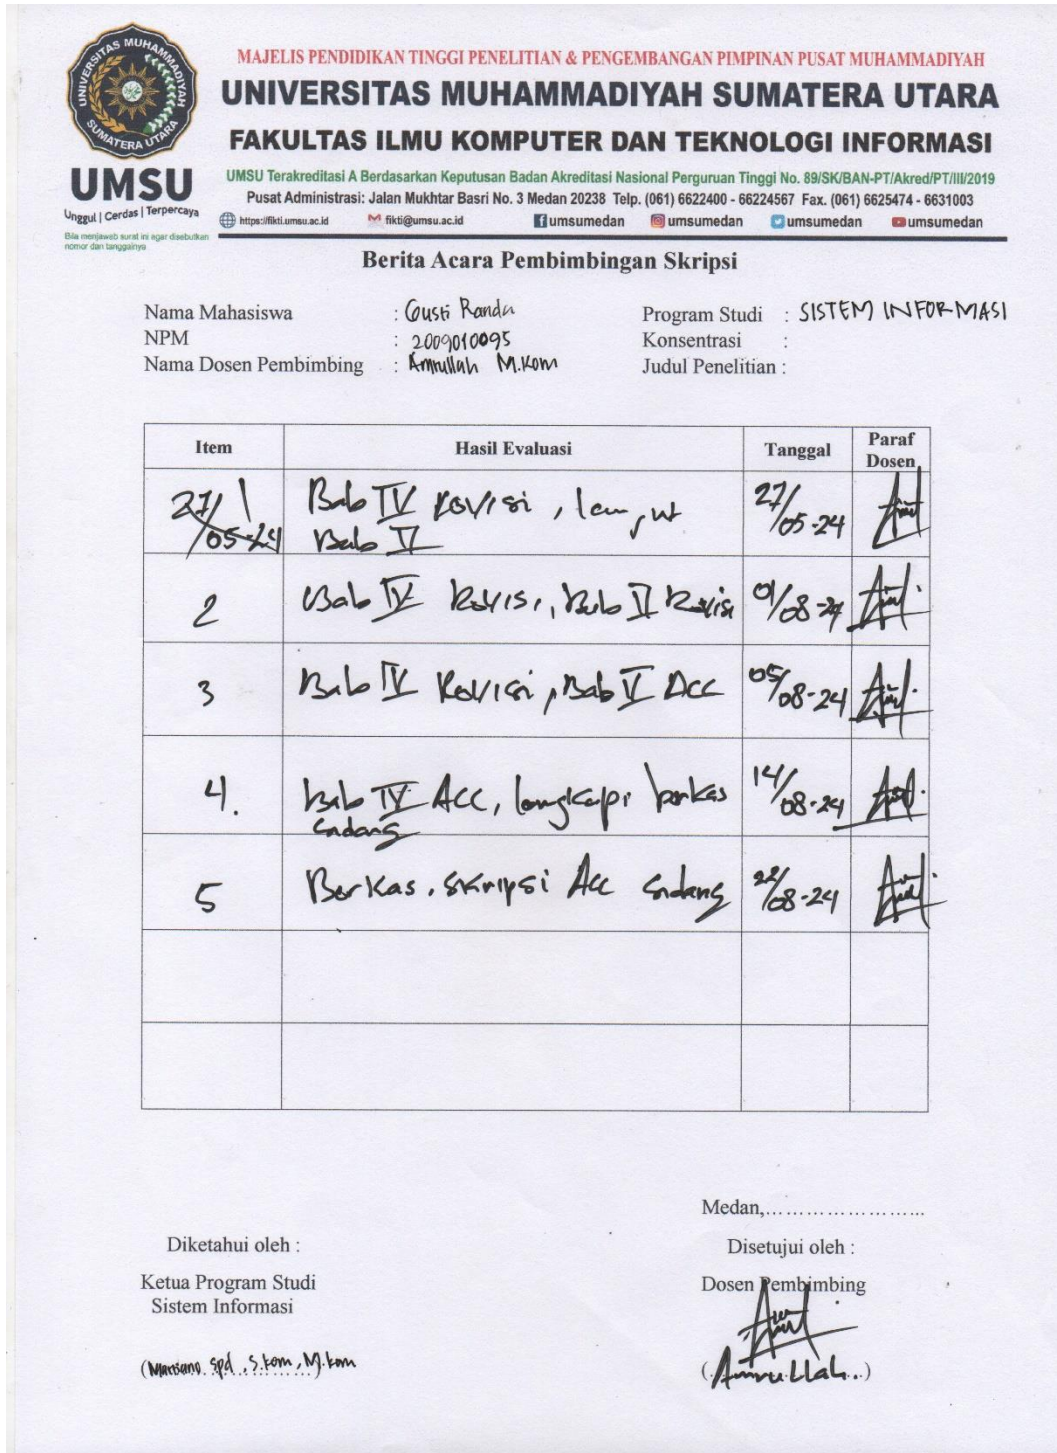 UNIVERSITAS MUHAMMADIYAH
SUMATERA UTARA
UMSU
Unggul | Cerdas | Terpercaya
Bila menjawab surat ini agar disebutkan
nomor dan tanggalnya
MAJELIS PENDIDIKAN TINGGI PENELITIAN & PENGEMBANGAN PIMPINAN PUSAT MUHAMMADIYAH
UNIVERSITAS MUHAMMADIYAH SUMATERA UTARA
FAKULTAS ILMU KOMPUTER DAN TEKNOLOGI INFORMASI
UMSU Terakreditasi A Berdasarkan Keputusan Badan Akreditasi Nasional Perguruan Tinggi No. 89/SK/BAN-PT/Akred/PT/III/2019
Pusat Administrasi: Jalan Mukhtar Basri No. 3 Medan 20238 Telp. (061) 6622400 - 66224567 Fax. (061) 6625474 - 6631003
https://fikti.umsu.ac.id fikti@umsu.ac.id umsumedan umsumedan umsumedan umsumedan
Berita Acara Pembimbingan Skripsi
Nama Mahasiswa : Gusti Randa Program Studi : SISTEM INFORMASI
NPM : 2009010095 Konsentrasi :
Nama Dosen Pembimbing : Amrullah M.Kom Judul Penelitian :
Item Hasil Evaluasi Tanggal Paraf Dosen
27/05-24 1 Bab IV Revisi, lanjut 27/05-24
Bab V
2 Bab IV Revisi, Bab V Revisi 01/08-24
3 Bab IV Revisi, Bab V Acc 05/08-24
4. Bab IV Acc, lengkapi berkas 14/08-24
sidang
5 Berkas, skripsi Acc sidang 22/08-24
Medan,........................
Diketahui oleh : Disetujui oleh :
Ketua Program Studi Dosen Pembimbing
Sistem Informasi
(Martiano Spd, S.kom, M.kom) (Amrullah..)